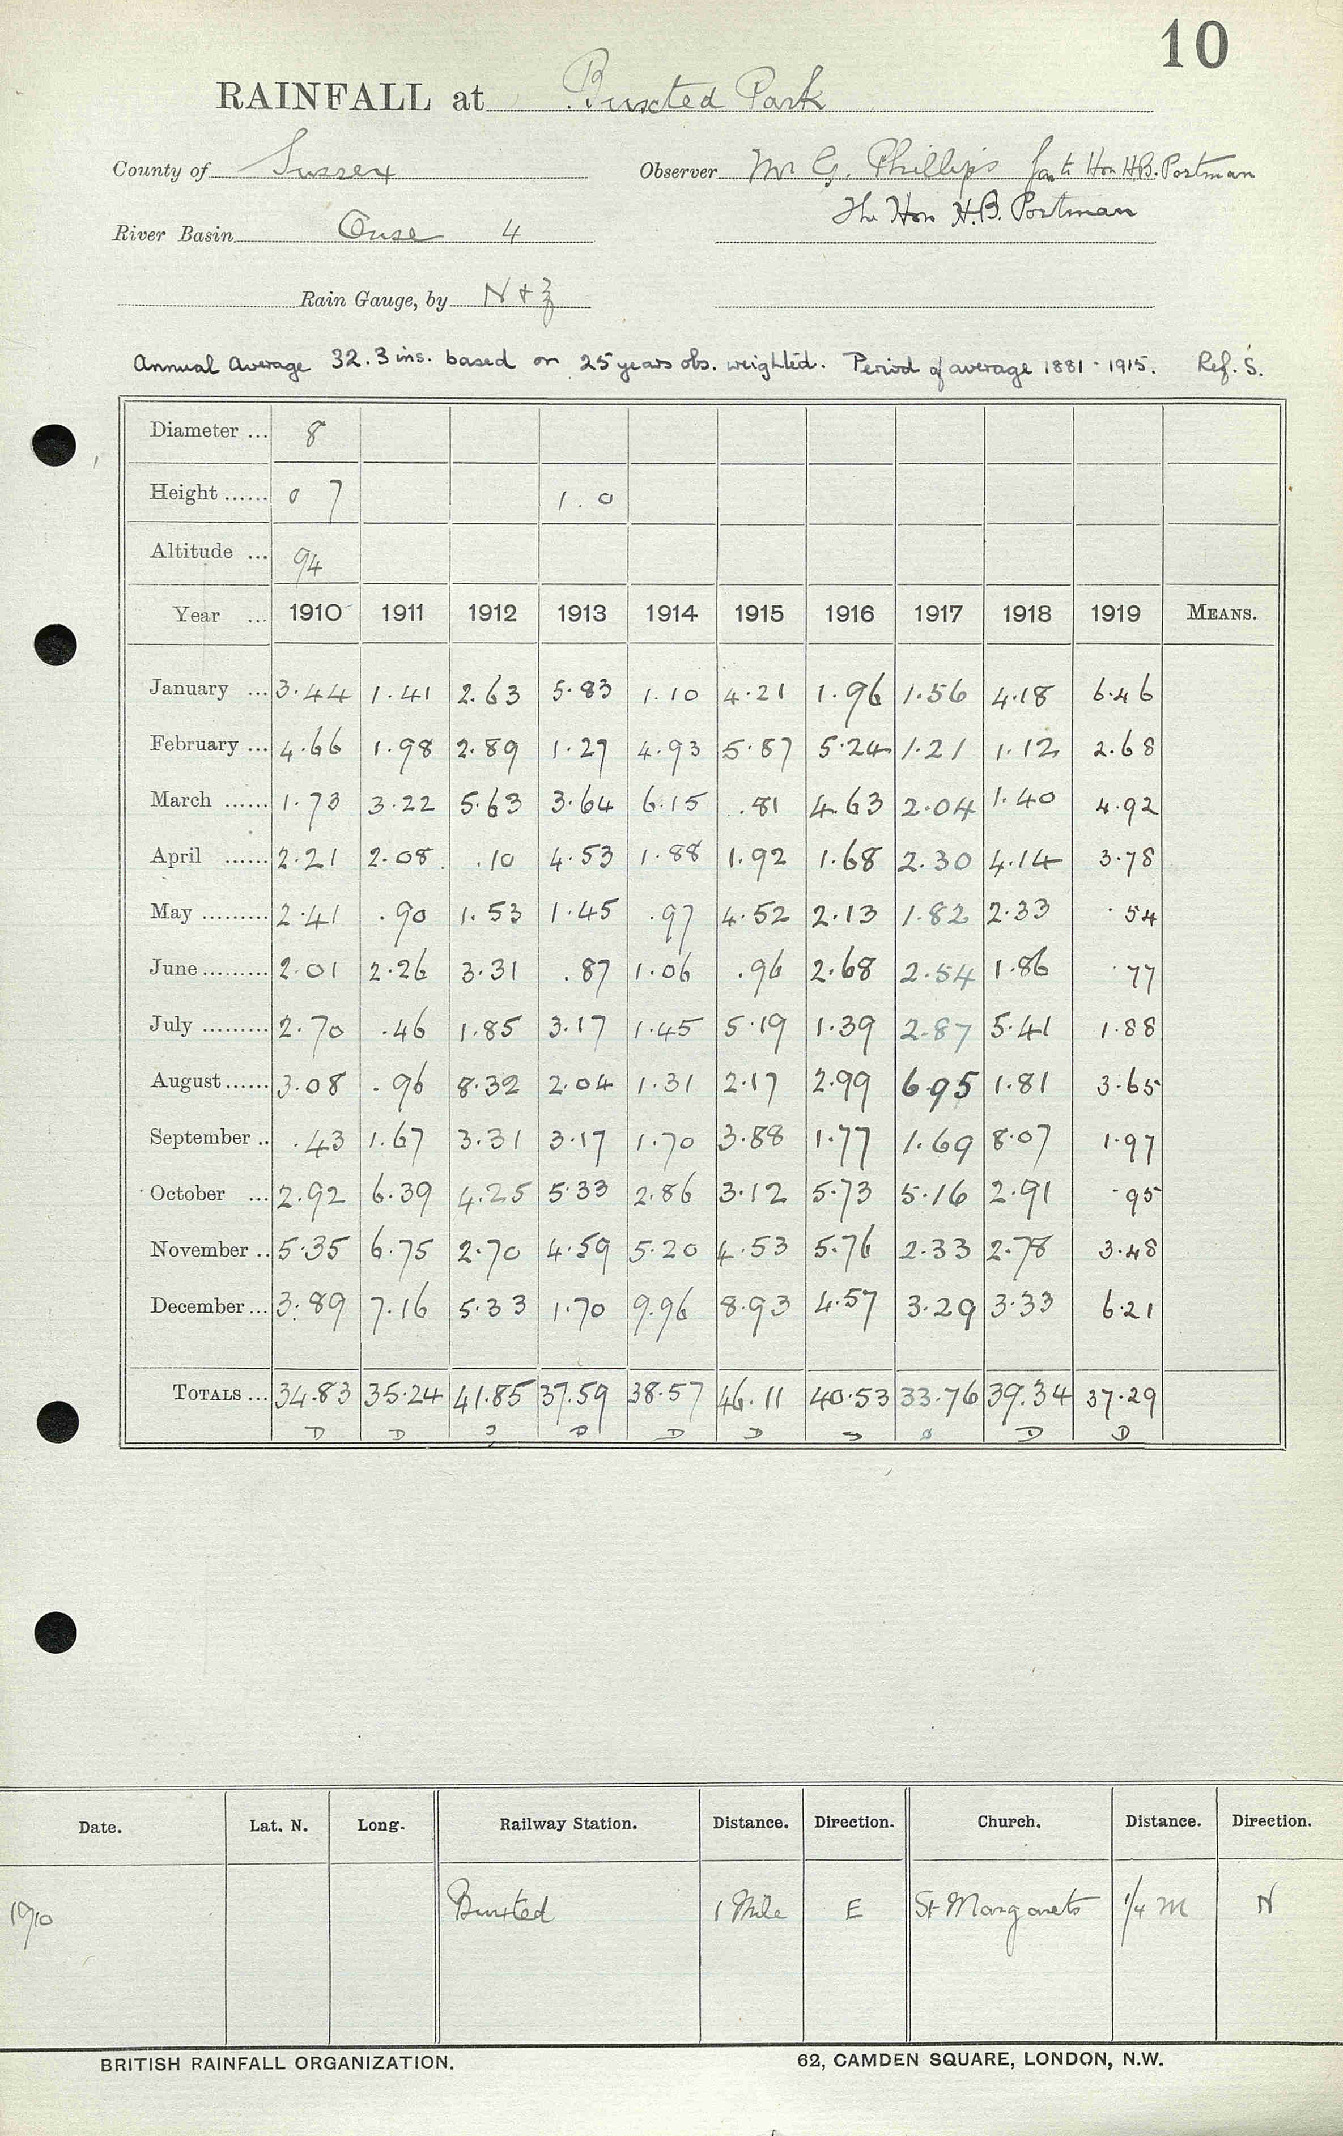 10
RAINFALL at Buxted Park
County of Sussex Observer Mr G. Phillips for the Hon H.B. Portman
The Hon H.B. Portman
River Basin Ouse 4
Rain Gauge, by N & Z
Annual Average 32.3 ins. based on 25 years obs. weighted. Period of average 1881 - 1915. Ref. S.
Diameter ... 8
Height ...... 0 7 1.0
Altitude ... 94
Year ... 1910 1911 1912 1913 1914 1915 1916 1917 1918 1919 MEANS.
January ... 3.44 1.41 2.63 5.83 1.10 4.21 1.96 1.56 4.18 6.46
February ... 4.66 1.98 2.89 1.27 4.93 5.87 5.24 1.21 1.12 2.68
March ...... 1.73 3.22 5.63 3.64 6.15 .81 4.63 2.04 1.40 4.92
April ...... 2.21 2.08 .10 4.53 1.88 1.92 1.68 2.30 4.14 3.78
May ......... 2.41 .90 1.53 1.45 .97 4.52 2.13 1.82 2.33 .54
June ......... 2.01 2.26 3.31 .87 1.06 .96 2.68 2.54 1.86 .77
July ......... 2.70 .46 1.85 3.17 1.45 5.19 1.39 2.87 5.41 1.88
August ...... 3.08 .96 8.32 2.04 1.31 2.17 2.99 6.95 1.81 3.65
September .. .43 1.67 3.31 3.17 1.70 3.88 1.77 1.69 8.07 1.97
October ... 2.92 6.39 4.25 5.33 2.86 3.12 5.73 5.16 2.91 .95
November .. 5.35 6.75 2.70 4.59 5.20 4.53 5.76 2.33 2.78 3.48
December ... 3.89 7.16 5.33 1.70 9.96 8.93 4.57 3.29 3.33 6.21
TOTALS ... 34.83 35.24 41.85 37.59 38.57 46.11 40.53 33.76 39.34 37.29
Date. Lat. N. Long. Railway Station. Distance. Direction. Church. Distance. Direction.
1910 Buxted 1 Mile E St Margarets 1/4 m N
BRITISH RAINFALL ORGANIZATION. 62, CAMDEN SQUARE, LONDON, N.W.